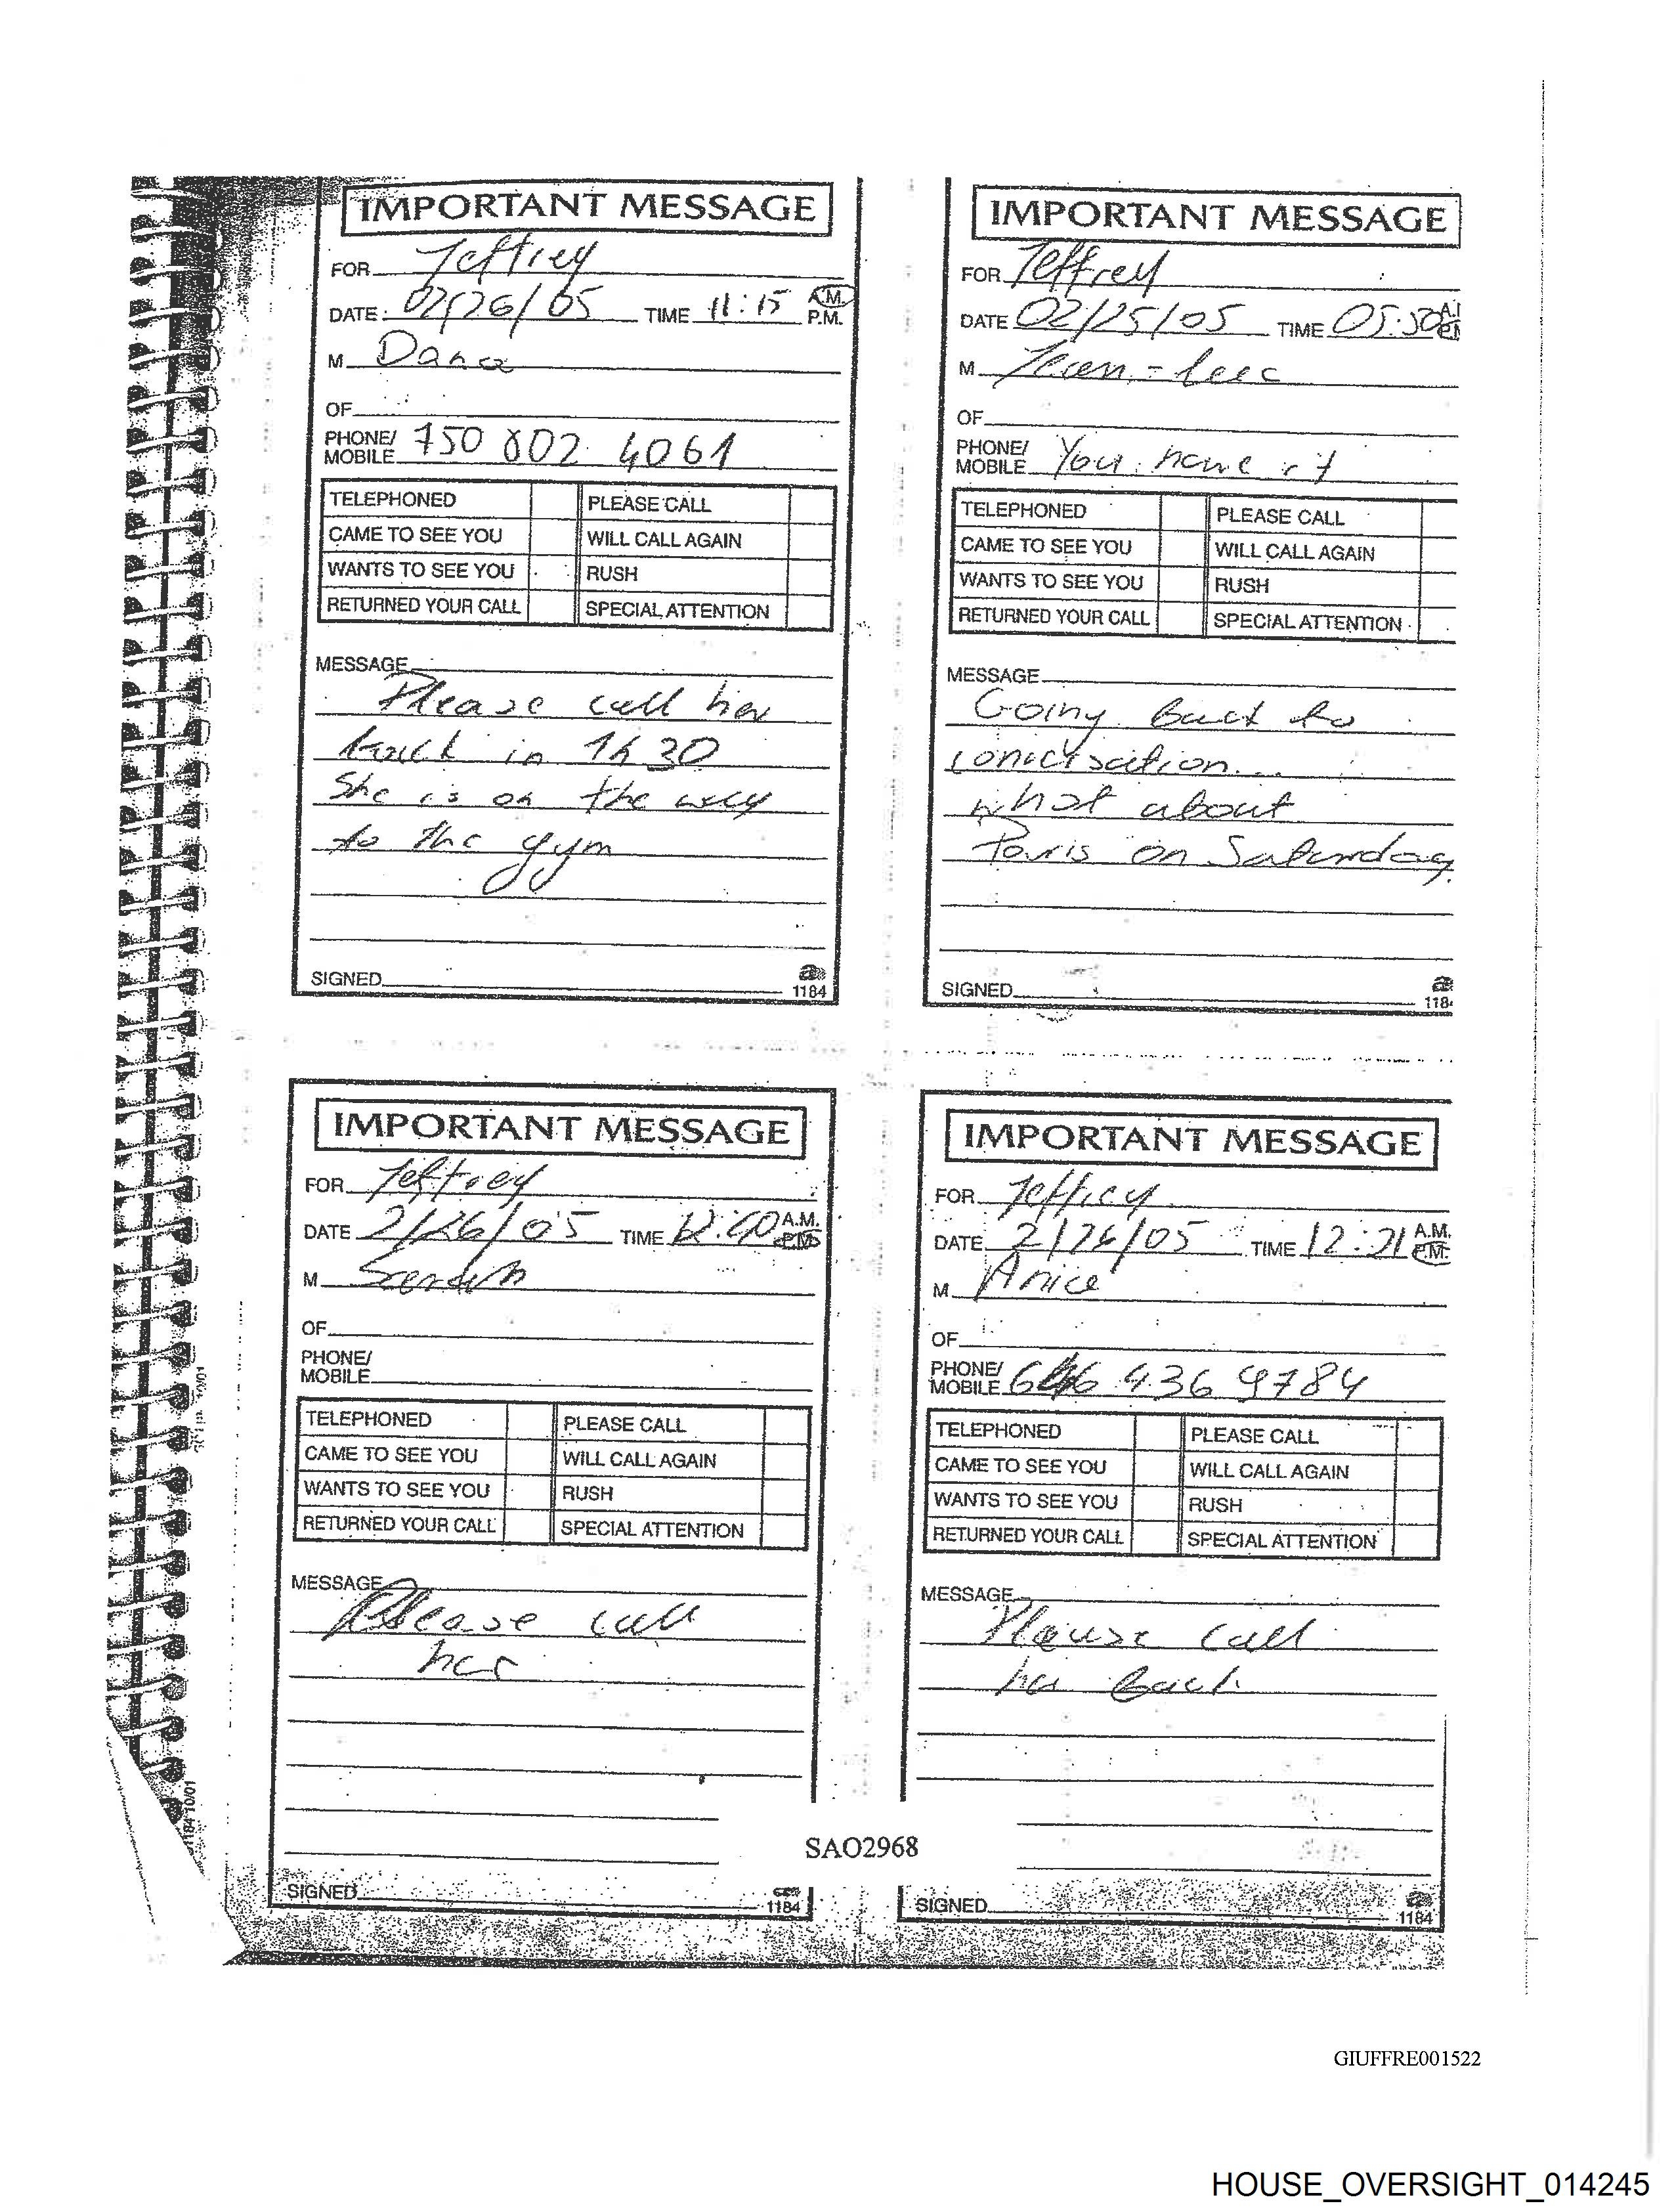 IMPORTANT MESSAGE
FOR Jeffrey
DATE 02/26/05 TIME 11:15 A.M. P.M.
M Dana
OF
PHONE/ MOBILE 750 802 4061
TELEPHONED PLEASE CALL
CAME TO SEE YOU WILL CALL AGAIN
WANTS TO SEE YOU RUSH
RETURNED YOUR CALL SPECIAL ATTENTION
MESSAGE
Please call her
back in 1h30
She is on the way
to the gym
SIGNED
1184
IMPORTANT MESSAGE
FOR Jeffrey
DATE 02/25/05 TIME 05:50
M Jean-Luc
OF
PHONE/ MOBILE You have it
TELEPHONED PLEASE CALL
CAME TO SEE YOU WILL CALL AGAIN
WANTS TO SEE YOU RUSH
RETURNED YOUR CALL SPECIAL ATTENTION
MESSAGE
Going back to
conversation...
what about
Paris on Saturday
SIGNED
118
IMPORTANT MESSAGE
FOR Jeffrey
DATE 2/26/05 TIME A.M. P.M.
M
OF
PHONE/ MOBILE
TELEPHONED PLEASE CALL
CAME TO SEE YOU WILL CALL AGAIN
WANTS TO SEE YOU RUSH
RETURNED YOUR CALL SPECIAL ATTENTION
MESSAGE
Please call
her
SIGNED
1184
IMPORTANT MESSAGE
FOR Jeffrey
DATE 2/26/05 TIME 12:21 A.M. P.M.
M Anice
OF
PHONE/ MOBILE 646 436 9784
TELEPHONED PLEASE CALL
CAME TO SEE YOU WILL CALL AGAIN
WANTS TO SEE YOU RUSH
RETURNED YOUR CALL SPECIAL ATTENTION
MESSAGE
Please call
her back
SIGNED
1184
1184 10/01
SAO2968
GIUFFRE001522
HOUSE_OVERSIGHT_014245